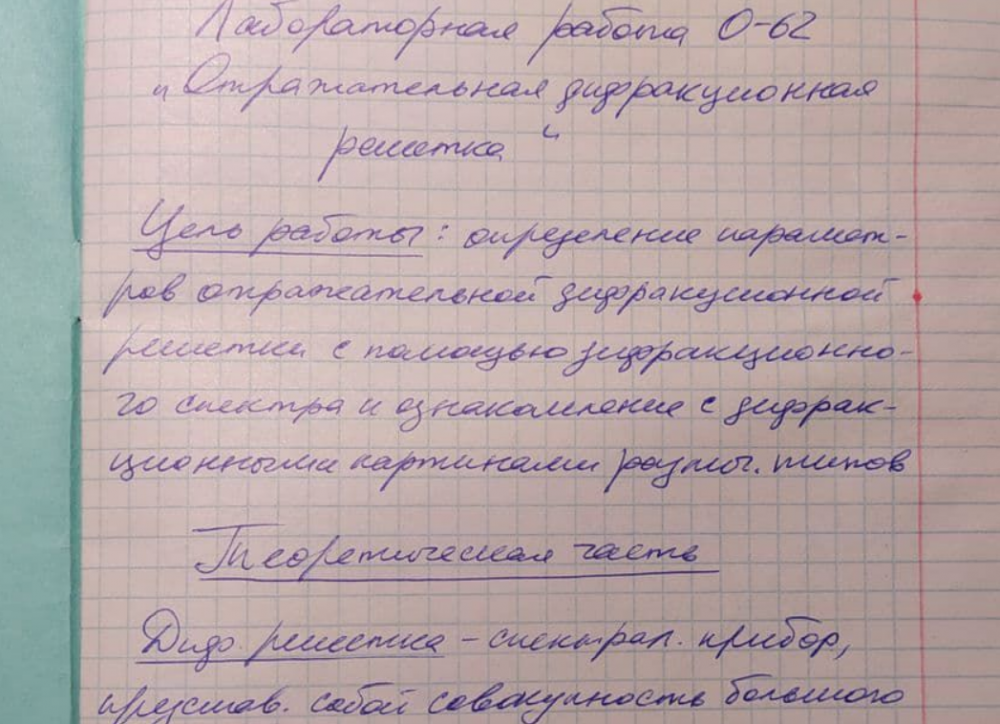 Лабораторная работа О-62
„Отражательная дифракционная
решетка“
Цель работы: определение парамет-
ров отражательной дифракционной
решетки с помощью дифракционно-
го спектра и ознакомление с дифрак-
ционными картинами различ. типов
Теоретическая часть
Диф. решетка – спектрал. прибор,
представ. собой совокупность большого